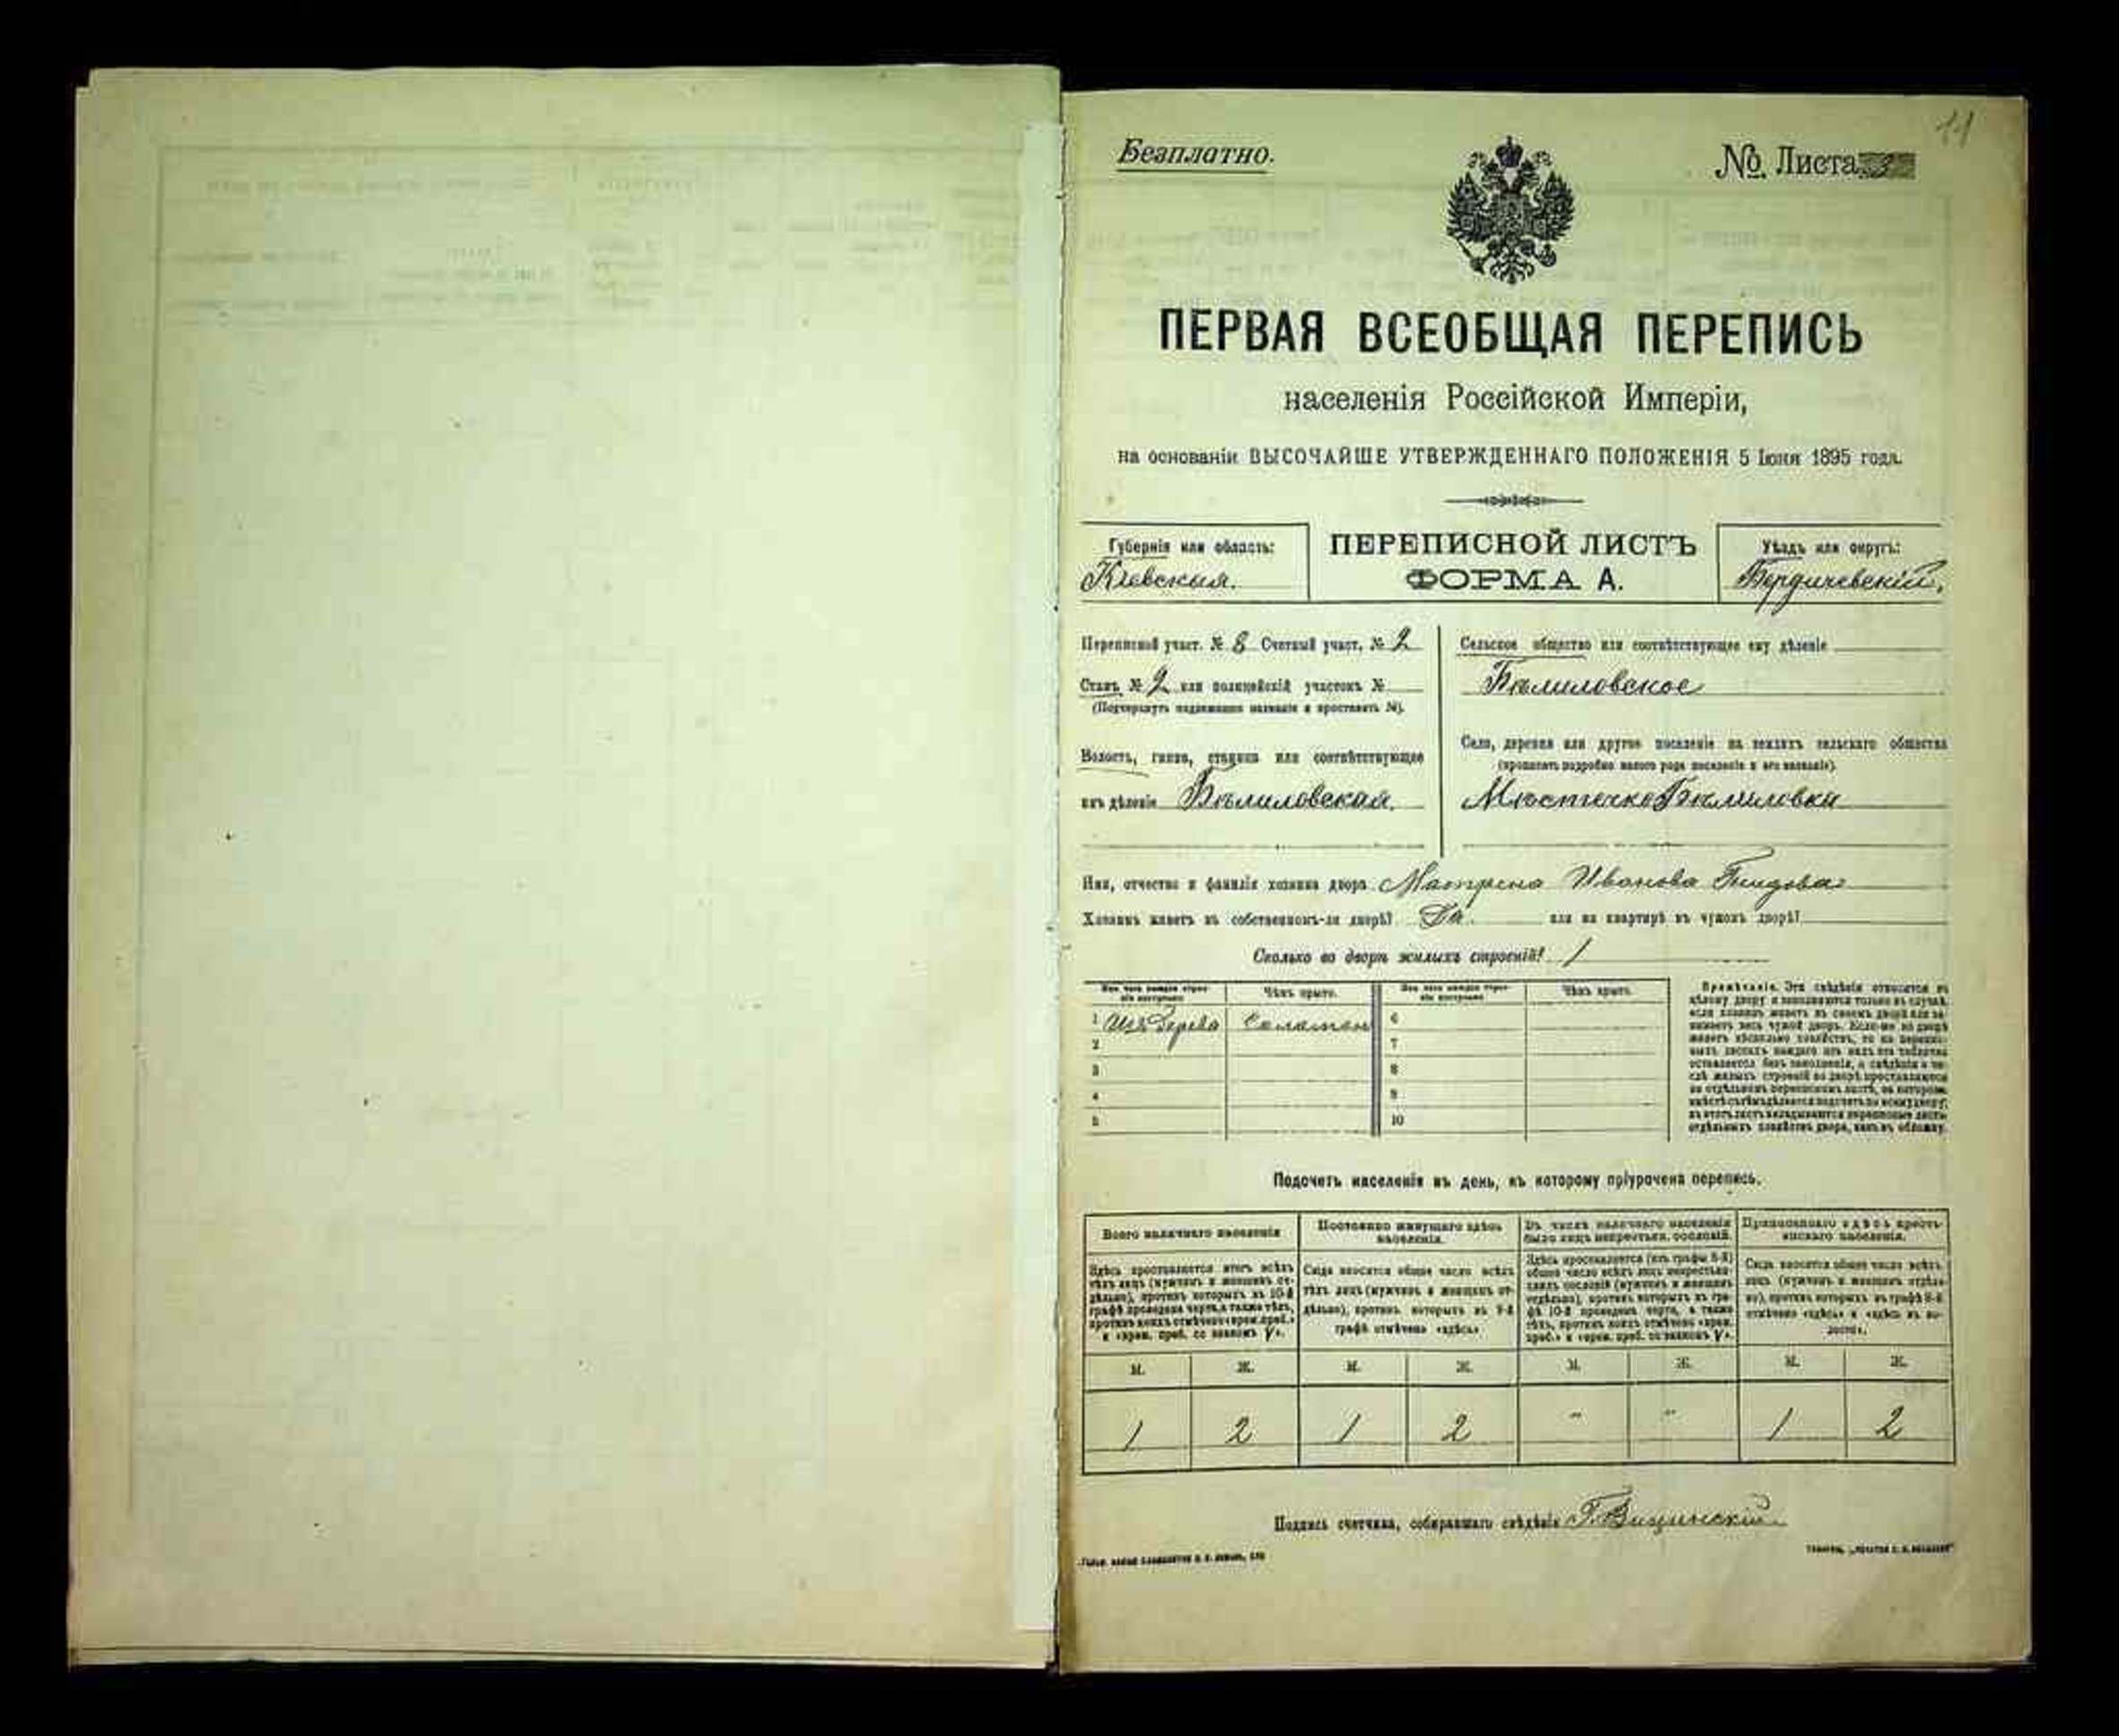 11
Безплатно.
№ Листа 3
ПЕРВАЯ ВСЕОБЩАЯ ПЕРЕПИСЬ
населенія Россійской Имперіи,
на основаніи ВЫСОЧАЙШЕ УТВЕРЖДЕННАГО ПОЛОЖЕНІЯ 5 Іюня 1895 года.
Губернія или область:
Кіевская.
ПЕРЕПИСНОЙ ЛИСТЪ
ФОРМА А.
Уѣздъ или округъ:
Бердичевскій,
Переписной участ. № 8 Счетный участ. № 2
Станъ № 2 или полицейскій участокъ №
(Подчеркнуть надлежащее названіе и проставить №).
Волость, гмина, станица или соотвѣтствующее
имъ дѣленіе Бѣлиловская.
Сельское общество или соотвѣтствующее ему дѣленіе
Бѣлиловское
Село, деревня или другое поселеніе на земляхъ сельскаго общества
(прописать подробно какого рода поселеніе и его названіе).
Мѣстечко Бѣлиловка
Имя, отчество и фамилія хозяина двора Матрена Иванова
Хозяинъ живетъ въ собственномъ-ли дворѣ? Да. или на квартирѣ въ чужомъ дворѣ?
Сколько во дворѣ жилыхъ строеній? 1
Изъ чего каждое строеніе построено
Чѣмъ крыто.
Изъ чего каждое строеніе построено
Чѣмъ крыто.
1 Изъ дерева Соломою 6
2 7
3 8
4 9
5 10
Примѣчаніе. Эти свѣдѣнія относятся къ
цѣлому двору и заполняются только въ случаѣ,
если хозяинъ живетъ въ своемъ дворѣ или за-
нимаетъ весь чужой дворъ. Если-же во дворѣ
живетъ нѣсколько хозяйствъ, то на перепис-
ныхъ листахъ каждаго изъ нихъ эта табличка
оставляется безъ заполненія, а свѣдѣнія о чи-
слѣ жилыхъ строеній во дворѣ проставляются
на отдѣльномъ переписномъ листѣ, на которомъ
вмѣстѣ съ тѣмъ дѣлается подсчетъ по всему двору;
въ этотъ листъ вкладываются переписные листы
отдѣльныхъ хозяйствъ двора, какъ въ обложку.
Подсчетъ населенія въ день, къ которому пріурочена перепись.
Всего наличнаго населенія
Здѣсь проставляется итогъ всѣхъ
тѣхъ лицъ (мужчинъ и женщинъ от-
дѣльно), противъ которыхъ въ 10-й
графѣ проведена черта, а также тѣхъ,
противъ коихъ отмѣчено «врем. преб.»
и «врем. преб. со знакомъ V».
Постоянно живущаго здѣсь
населенія.
Сюда вносится общее число всѣхъ
тѣхъ лицъ (мужчинъ и женщинъ от-
дѣльно), противъ которыхъ въ 9-й
графѣ отмѣчено «здѣсь»
Въ числѣ наличнаго населенія
было лицъ некрестьян. сословій.
Здѣсь проставляется (изъ графы 8-й)
общее число всѣхъ лицъ некрестьян-
скихъ сословій (мужчинъ и женщинъ
отдѣльно), противъ которыхъ въ гра-
фѣ 10-й проведена черта, а также
тѣхъ, противъ коихъ отмѣчено «врем.
преб.» и «врем. преб. со знакомъ V».
Приписаннаго здѣсь кресть-
янскаго населенія.
Сюда вносится общее число всѣхъ
лицъ (мужчинъ и женщинъ отдѣль-
но), противъ которыхъ въ графѣ 8-й
отмѣчено «здѣсь» и «здѣсь въ во-
лости».
М. Ж. М. Ж. М. Ж. М. Ж.
1 2 1 2 " " 1 2
Подпись счетчика, собиравшаго свѣдѣнія